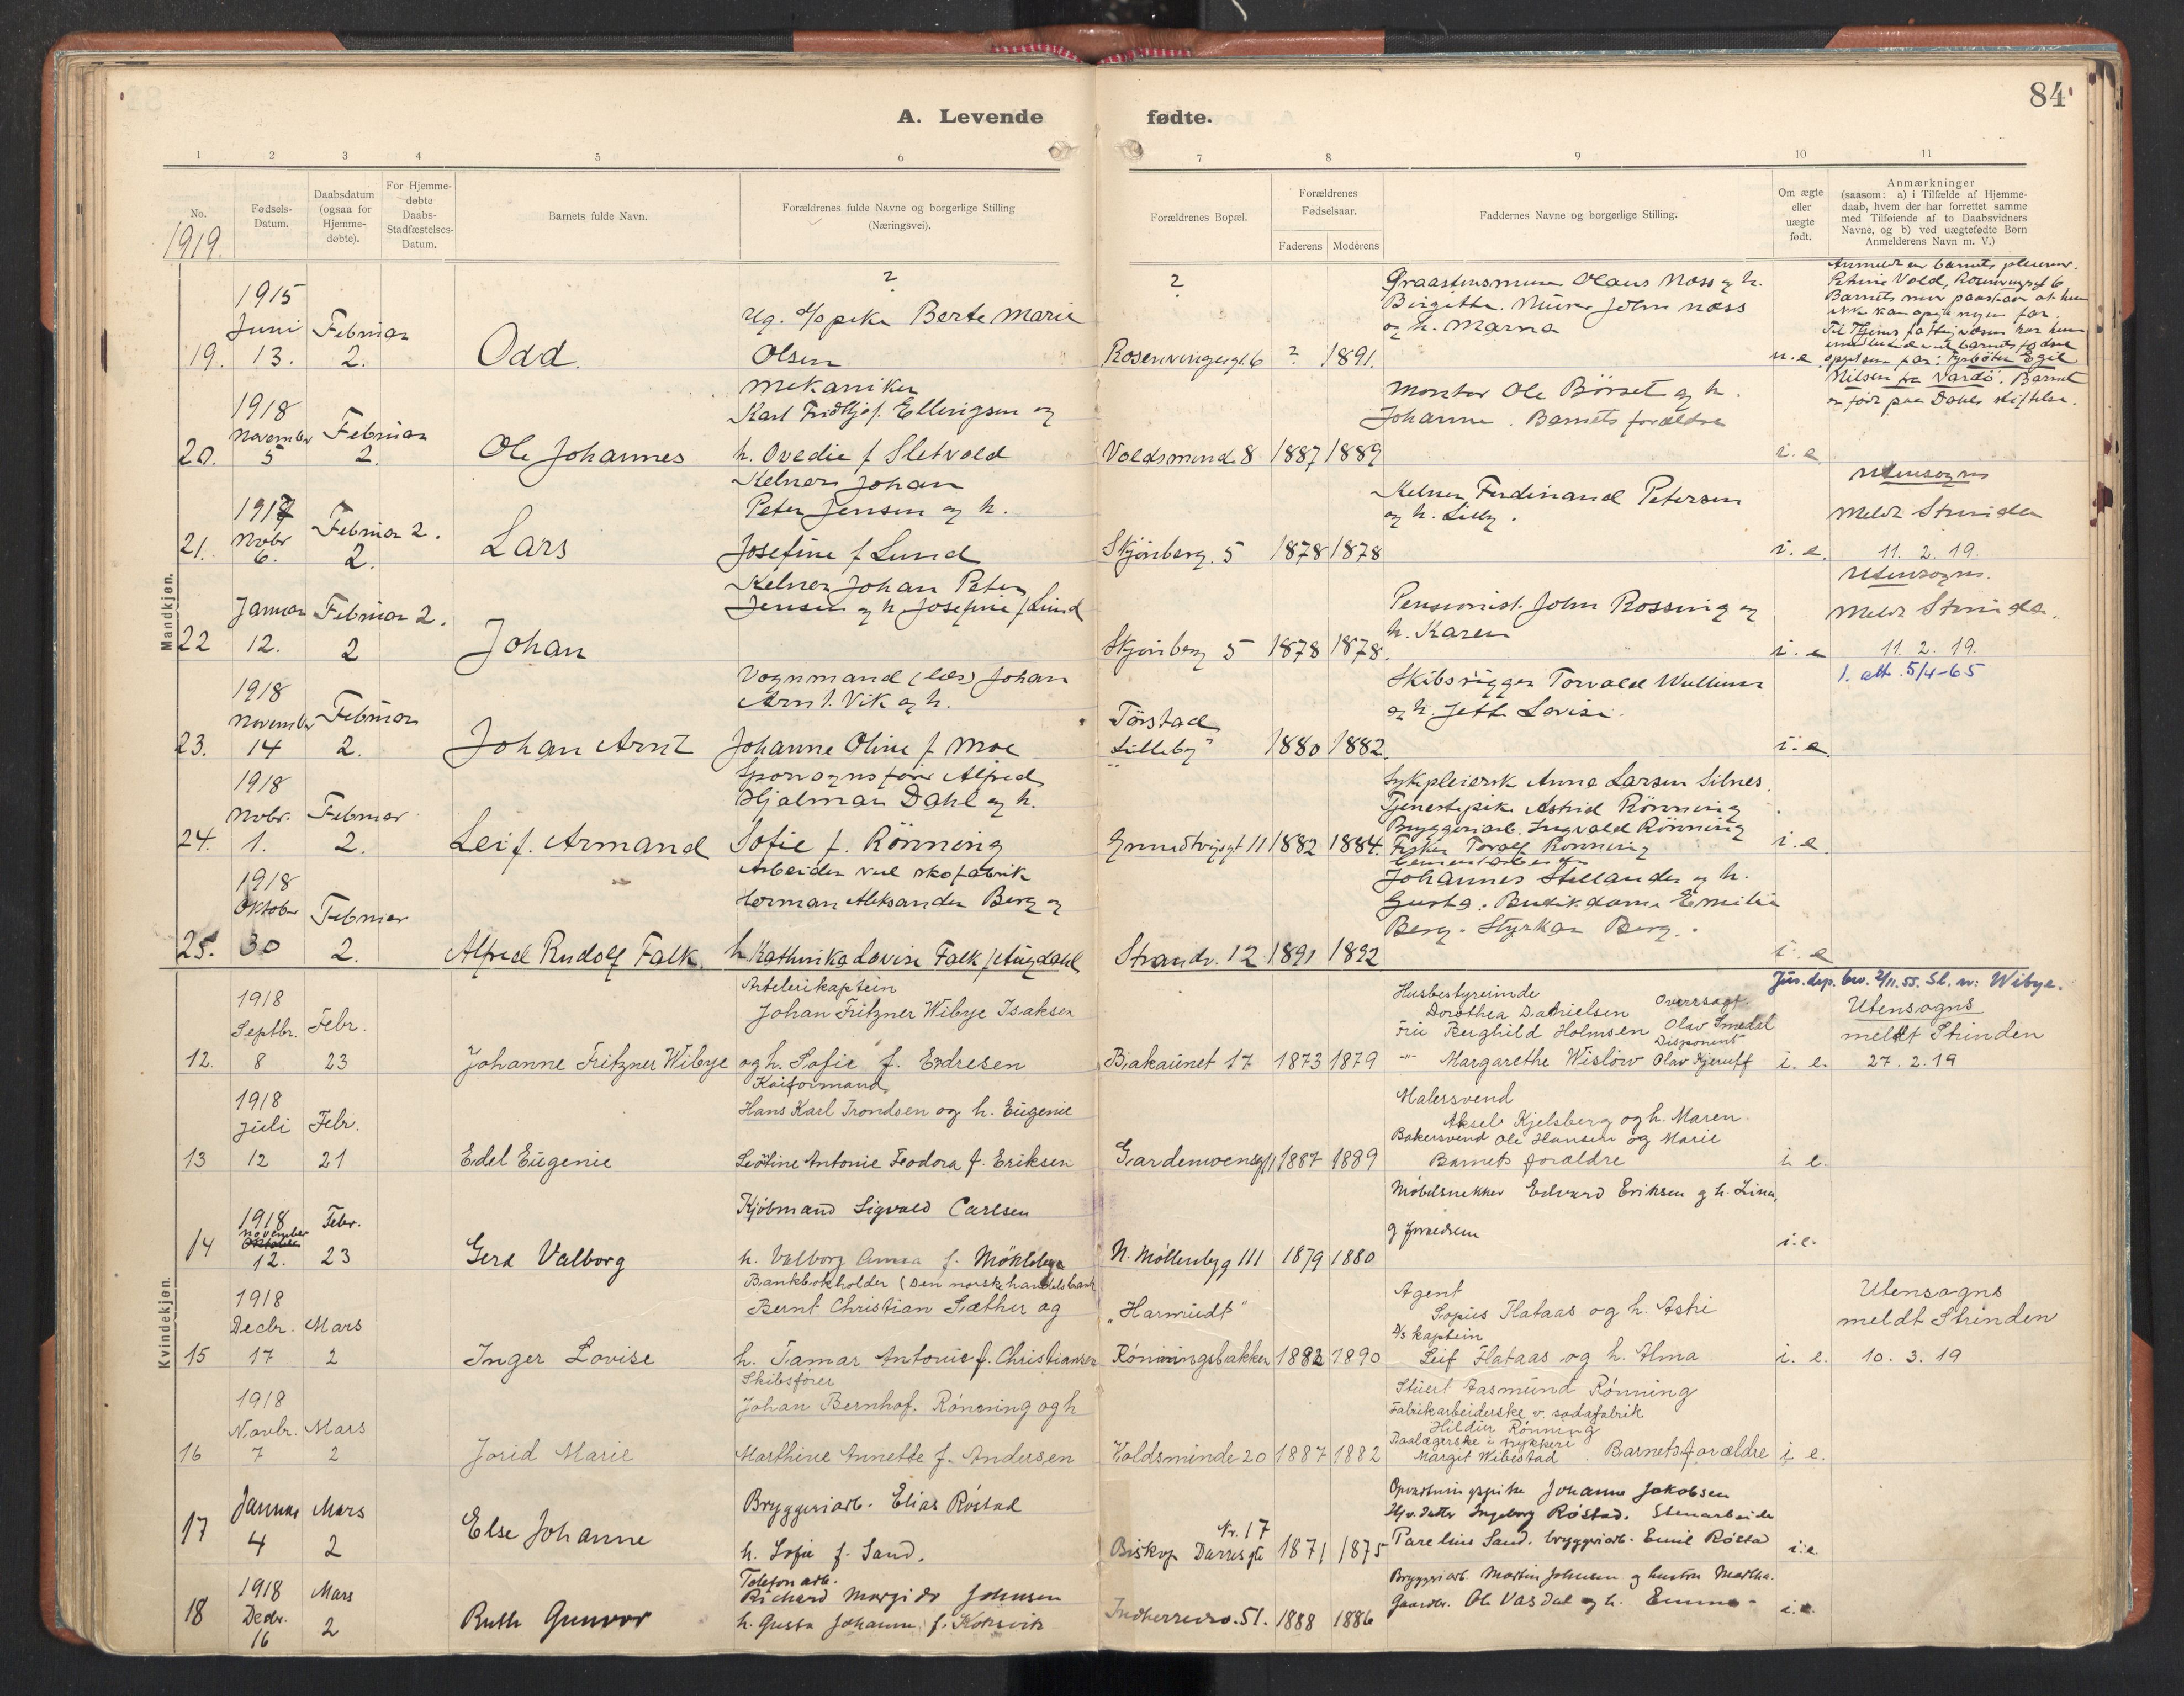 84
A. Levende fødte.
1 2 3 4 5 6 7 8 9 10 11
No.
1919.
Fødsels-
Datum.
Daabsdatum
(ogsaa for
Hjemme-
døbte).
For Hjemme-
døbte
Daabs-
Stadfæstelses-
Datum.
Barnets fulde Navn.
Forældrenes fulde Navne og borgerlige Stilling
(Næringsvei).
Forældrenes Bopæl.
Forældrenes
Fødselsaar.
Faderens Moderens
Faddernes Navne og borgerlige Stilling.
Om ægte
eller
uægte
født.
Anmærkninger
(saasom: a) i Tilfælde af Hjemme-
daab, hvem der har forrettet samme
med Tilføiende af to Daabsvidners
Navne, og b) ved uægtefødte Børn
Anmelderens Navn m. V.)
Mandkjøn.
19. 1915 Juni 13. Februar 2. Odd
?
Ug. Berte Marie
Olsen
?
Rosenvingegt. 6 ? 1891.
Olaus Næss og h.
Birgitte. Murer John Næss
og h. Marna
u.e.
Petrine Vold, Rosenvingegt 6
Nilsen fra Vardö. Barnet
er født paa Dahls stiftelse.
20. 1918 November 5 Februar 2. Ole Johannes
Mekaniker
Karl Fridtjof Ellingsen og
h. Ovedie f Sletvold
Voldsmind. 8 1887 1889
Montør Ole Börset og h.
Johanne. Barnets forældre
i. e.
21. 1917 Nobr 6. Februar 2. 2. Lars
Kelner Johan
Peter Jensen og h.
Josefine f Lund
Skjönberg. 5 1878 1878
Kelner Ferdinand Petersen
og h. Lilly.
i. e.
Utensogns
Meldt Strinden
11. 2. 19.
22 Januar 12. Februar 2. 2 Johan
Kelner Johan Peter
Jensen og h Josefine f Lund
Skjönberg 5 1878 1878.
Pensionist John Rossing og
h. Karen
i. e
Utensogns.
Meldt Strinden.
11. 2. 19.
1. att. 5/4-65
23. 1918 November 14 Februar 2. Johan Arnt
Vognmand (læs) Johan
Arnt Vik og h.
Johanne Oline f Moe
Törstad
Lilleby" 1880 1882.
Skibsrigger Torvald Wullum
og h. Lovise.
i. e
24. 1918 Nobr. 1. Februar 2. Leif Armand
Sporvognsfører Alfred
Hjalmar Dahl og h.
Sofie f. Rönning
Grundtvigsgt 11 1882 1884.
Sykepleiersk Anna Larsen Silnes.
Tjenestepike Astrid Rönning
Bryggeriarb. Ingvald Rönning
Fisker Rönning
i. e.
25. 1918 Oktober 30 Februar 2. Alfred Rudolf Falk.
Arbeider ved skofabrik
Herman Aleksander Berg og
h Kathinka Lovise Falk f Augdahl
Strandv. 12 1891 1892
Johannes Stellander og h.
Gusta. Butikdame Emilie
Berg. Styrkar Berg.
i. e
Kvindekjøn.
12. 1918 Septbr. 8 Febr. 23 Johanne Fritzner Wibye
Artelerikaptein
Johan Fritzner Wibye Isaksen
og h. Sofie f. Endresen
Bakaunet 17 1873 1879
Husbestyrerinde
Dorothea Danielsen Oversagf.
Frk Berghild Holmsen Olav Smedal
Disponent
-"- Margarethe Wisløw Olav Kjerulff
i. e.
Jus. dep. bev. 2/11.55. Sl. n: Wibye.
Utensogns
meldt Strinden
27. 2. 19
13 1918 Juli 12 Febr. 21 Edel Eugenie
Kaiformand
Hans Karl Trondsen og h. Eugenie
Leotine Antonie Feodora f. Eriksen
Gardemoensgt 11 1887 1889
Malersvend
Aksel Kjelsberg og h. Maren
Bakersvend Ole Hansen og Marie
Barnets forældre
i. e.
14 1918 November Oktober 12. Febr. 23 Gerd Valborg
Kjöbmand Sigvald Carlsen
h. Valborg Anna f. Möklebye
N. Möllenbyg 111 1879 1880
Möbelsnekker Edvard Eriksen og h. Lina,
og forældrene
i.e.
15 1918 Decbr. 17 Mars 2 Inger Lovise
Bankbokholder (Den norske handelsbank
Bernt Christian Sæther og
h. Tamar Antonie f. Christiansen
„Harmüdt"
Rönningsbakken 1882 1890
Agent
Sopus Flataas og h. Asti
D/S kaptein
Leif Flataas og h. Alma
i. e.
Utensogns
meldt Strinden
10. 3. 19
16 1918 Novbr. 7 Mars 2 Jorid Marie
Skibsfører
Johan Bernhof. Rönning og h
Marthine Annette f. Andersen
Voldsminde 20 1887 1882
Stuert Aasmund Rönning
Fabrikarbeiderske v. sodafabrik
Hildur Rönning
Paalægerske i trykkeri
Margit Wibestad. Barnets forældre
i e.
17 Januar 4 Mars 2 Else Johanne
Bryggeriarb. Elias Röstad
h. Sofie f. Sand.
Nr. 17
Biskop Darres gt 1871 1875
Opvartningspike Johanne Jakobsen
Hjv. datter Ingeborg Röstad. Stenarbeider
Parelius Sand. bryggeriarb. Emil Röstad
i.e.
18 1918 Decbr. 16 Mars 2 Ruth Gunvor
Telefonarb.
Richard Margido Johnsen
h. Gusta Johanne f. Koksvik
Indherredsv. 51. 1888 1886
Bryggeriarb. Martin Johnsen og hustru Martha.
Gaardbr. Ole Vasdal og h. Emma
i.e.